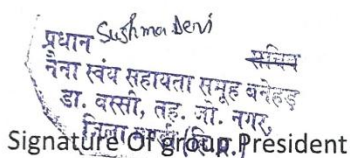 प्रधान Sushma Devi सचिव
नैना स्वंय सहायता समूह बनेहड़
डा. वस्सी, तह. जो. नगर,
जिला मण्डी (हि.प्र.)
Signature Of group President